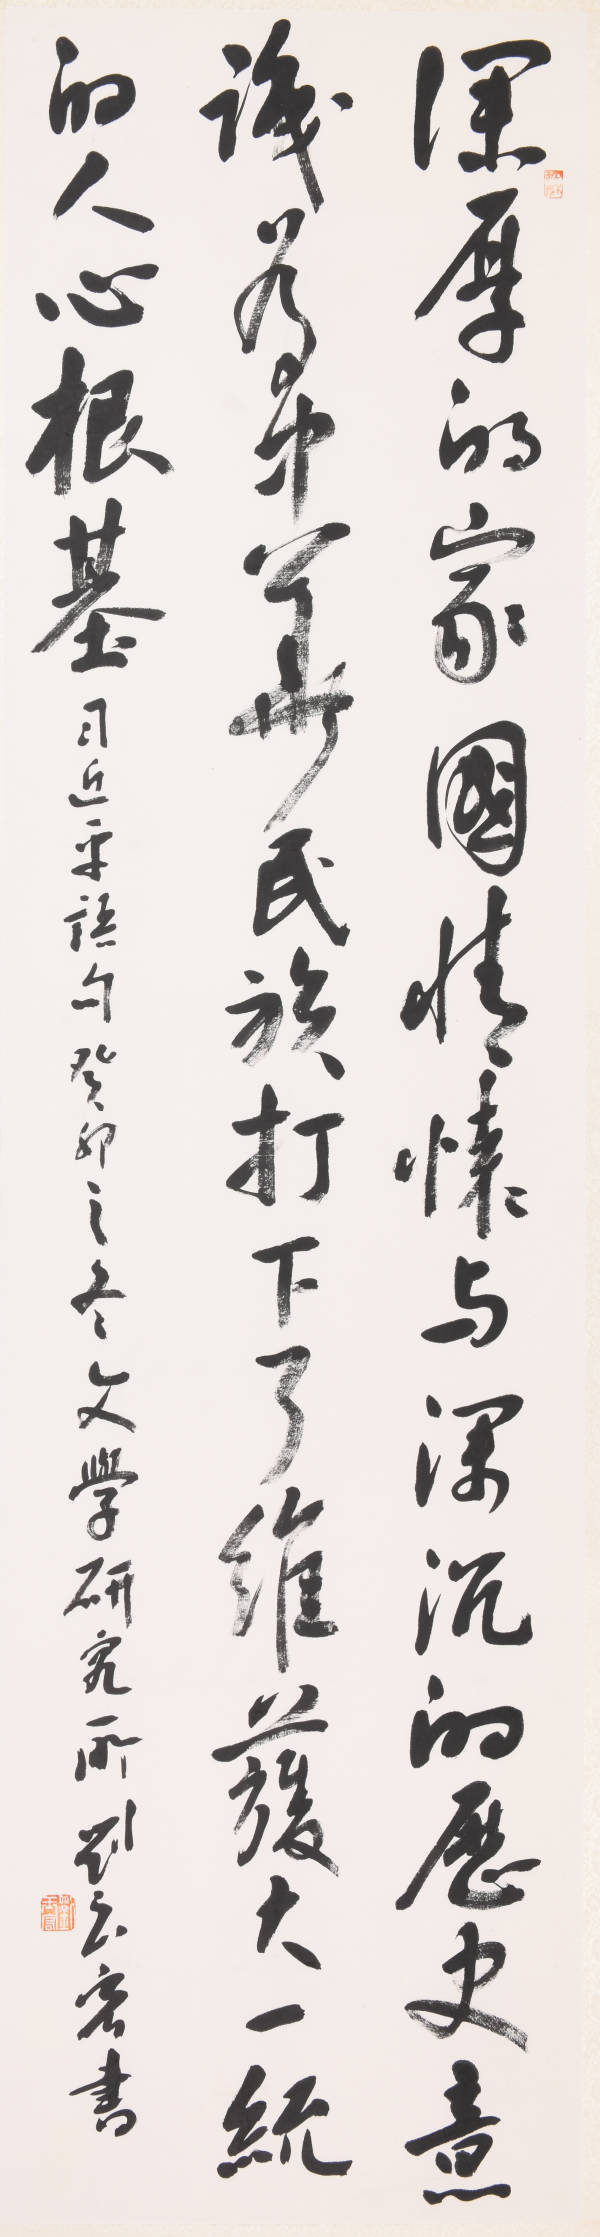 深厚的家國情懷与深沉的歷史意
識為中華民族打下了維護大一統
的人心根基 习近平語句癸卯之冬文學研究所劉玉宏書